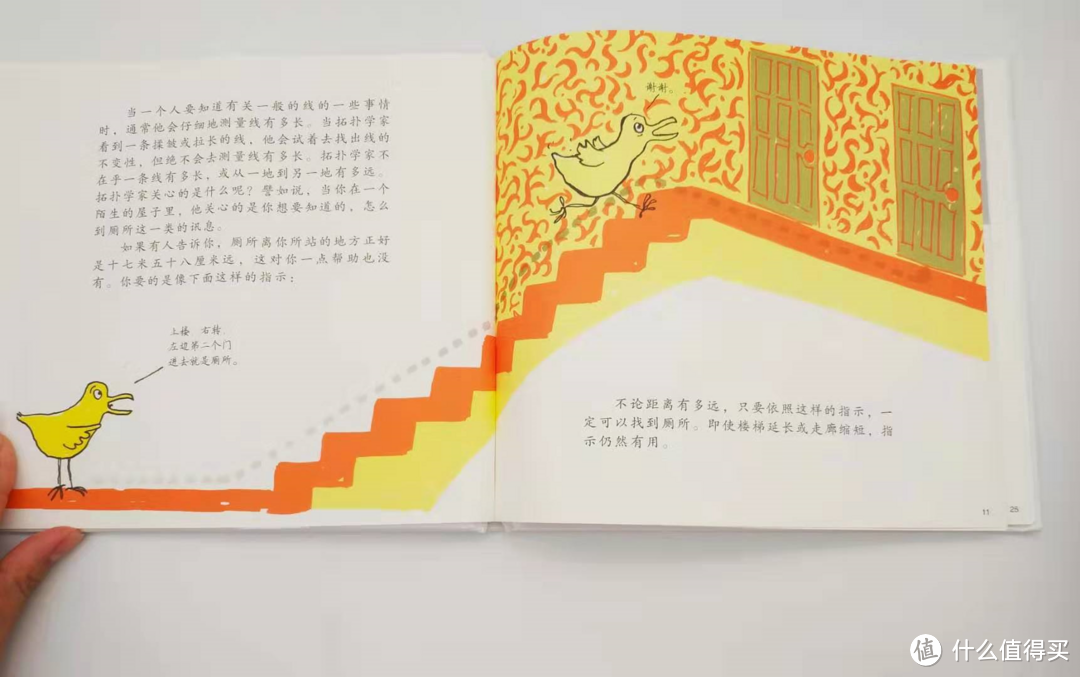 当一个人要知道有关一般的线的一些事情
时，通常他会仔细地测量线有多长。当拓扑学家
看到一条揉皱或拉长的线，他会试着去找出线的
不变性，但绝不会去测量线有多长。拓扑学家不
在乎一条线有多长，或从一地到另一地有多远。
拓扑学家关心的是什么呢？譬如说，当你在一个
陌生的屋子里，他关心的是你想要知道的，怎么
到厕所这一类的讯息。
如果有人告诉你，厕所离你所站的地方正好
是十七米五十八厘米远，这对你一点帮助也没
有。你要的是像下面这样的指示：
上楼 右转
左边第二个门
进去就是厕所。
谢谢。
不论距离有多远，只要依照这样的指示，一
定可以找到厕所。即使楼梯延长或走廊缩短，指
示仍然有用。
11
25
值 什么值得买